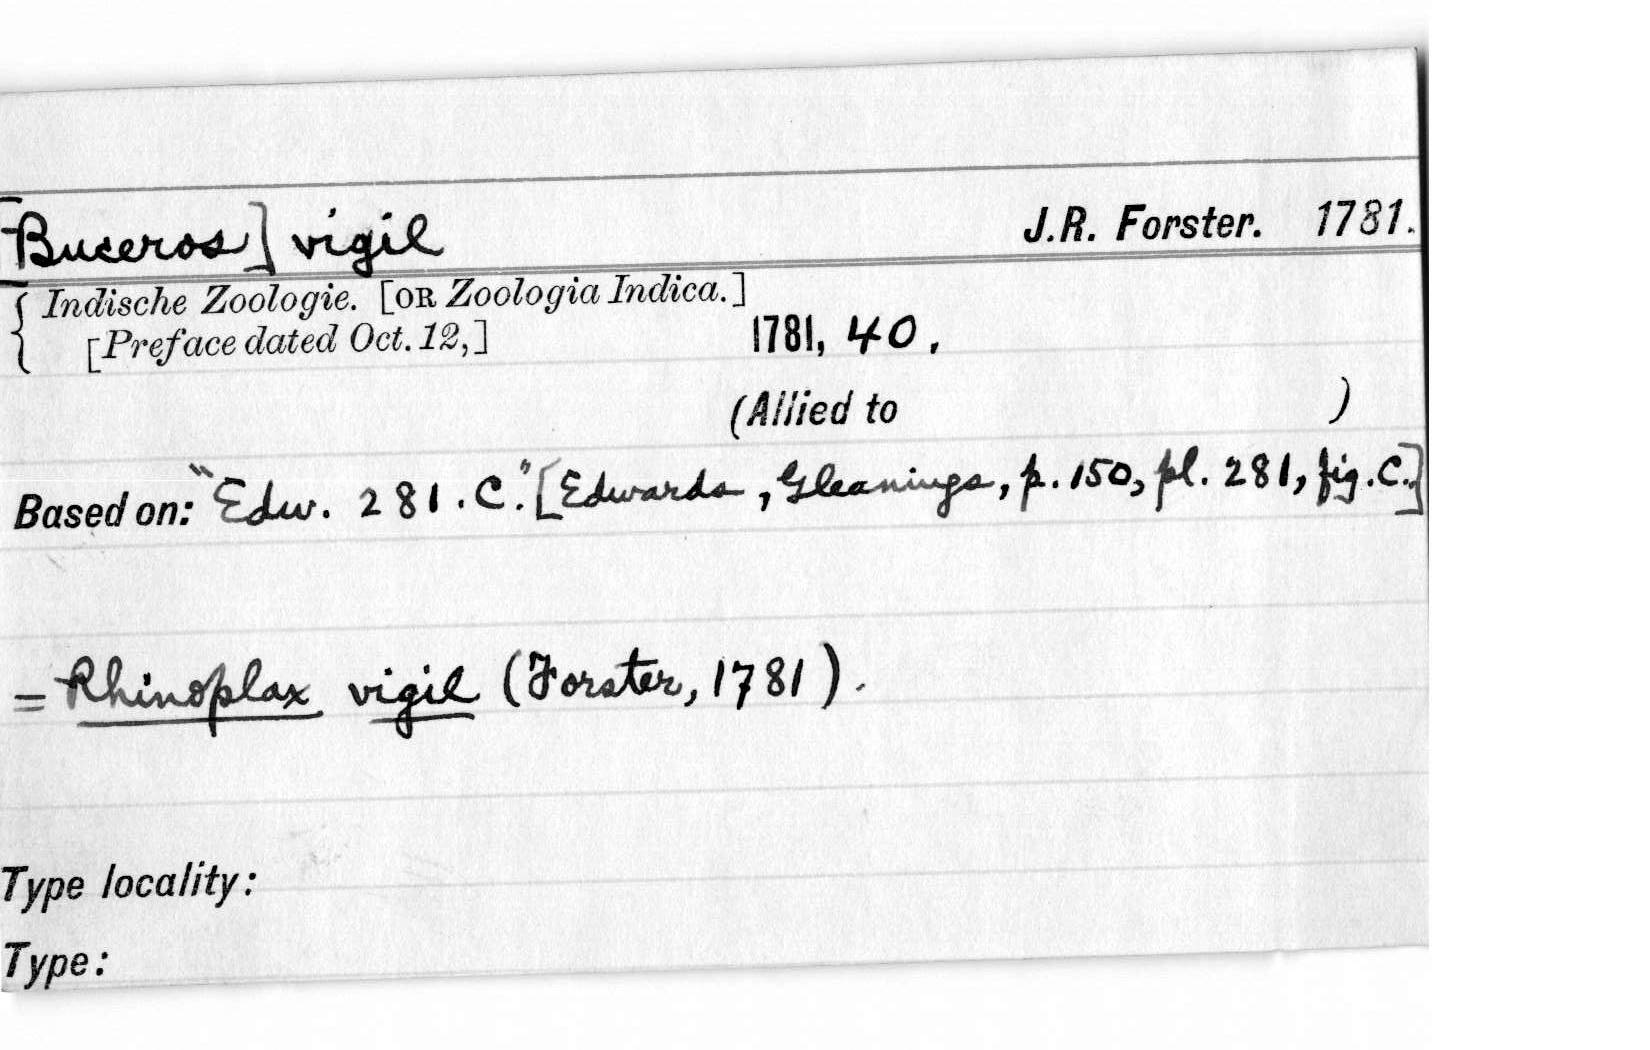 [Buceros] vigil J.R. Forster. 1781.
{ Indische Zoologie. [OR Zoologia Indica.]
[Preface dated Oct. 12,] 1781, 40.
(Allied to )
Based on: "Edw. 281. C." [Edwards, Gleanings, p. 150, pl. 281, fig. C.]
= Rhinoplax vigil (Forster, 1781).
Type locality:
Type: